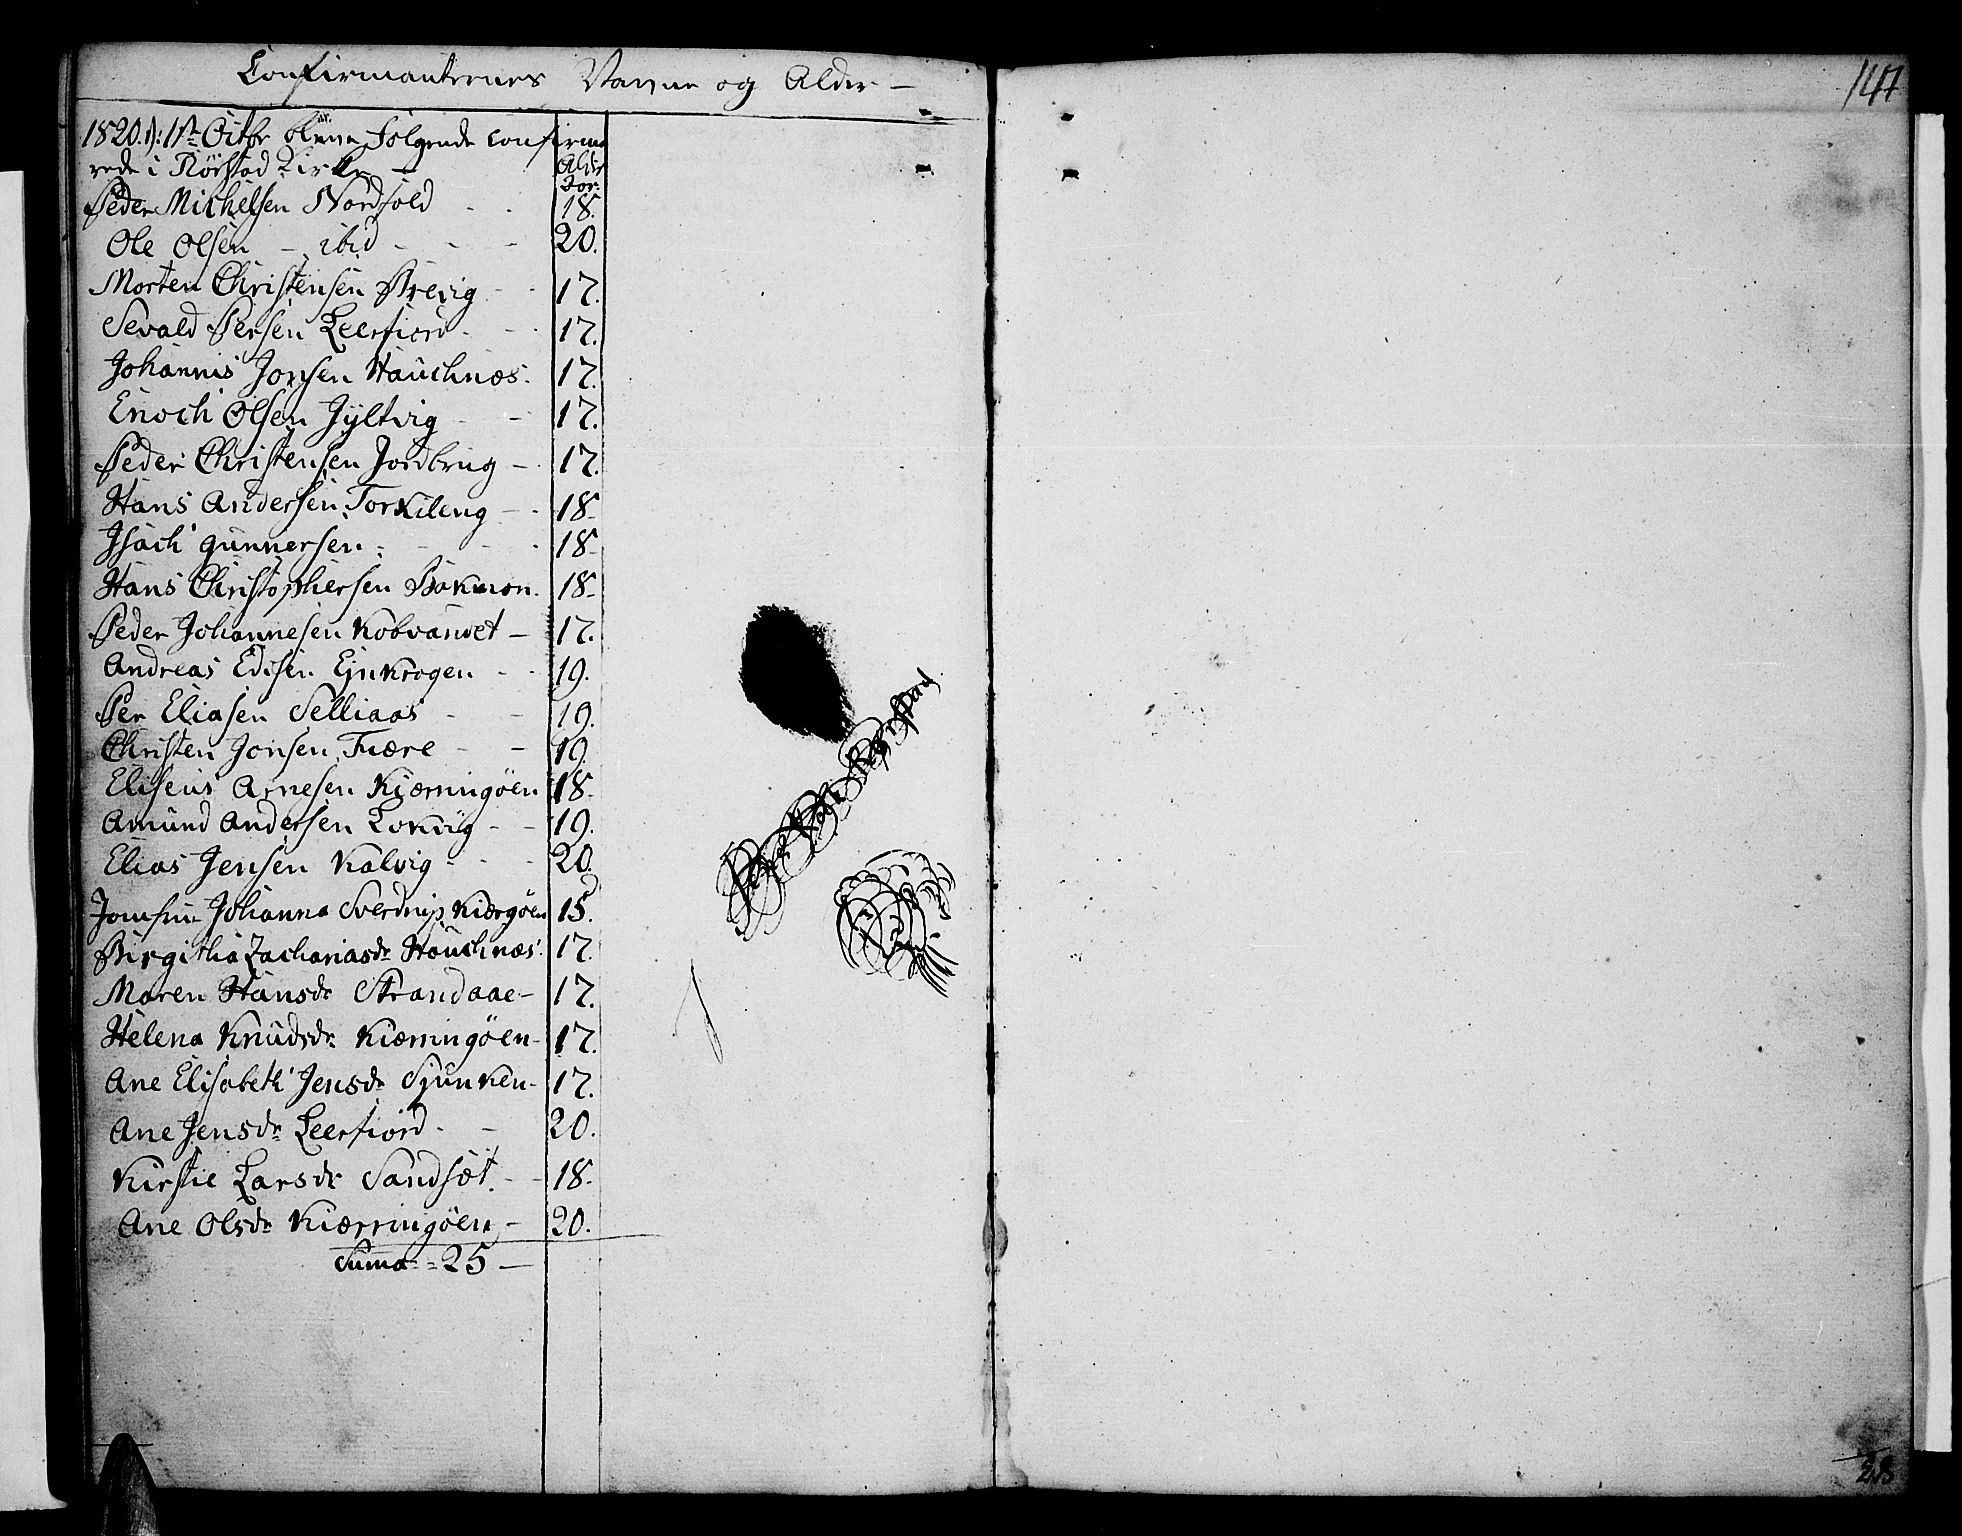 Confirmanternes Navne og Alder —
1820. d: 1te Octbr bleve Følgende confirme
rede i Rörstad Kirke —
Alder
Peder Michelsen Nordfold - - 18.
Ole Olsen - ibid - - - 20.
Morten Christensen Brevig - - 17.
Sevald Persen Leerfiord - - 17.
Johannis Jonsen Hauchnæs. 17.
Enoch Olsen Jyltvig - - 17.
Peder Christensen Jordbrug - 17.
Hans Andersen Torkileng - - 18-
Isach gunnersen - - - 18-
Hans Christophersen Bakmon. 18-
Peder Johannesen Kobvandet - 17.
Andreas Edisen Ejnkrogen - - 19.
Per Eliasen Selliaas - - 19.
Christen Jonsen Fiære - - 19.
Eliseus Arnesen Kiærringöen 18-
Amund Andersen Lokvig - - 19.
Elias Jensen Kalvig - - - 20.
Jomfrue Johanna Sverdrup Kiærgöen 15.
Birgitha Zachariasdr Hauchnæs. 17.
Maren Hansdr Strandaae - 17.
Helena Knudsdr Kiærringöen - 17.
Ane Elisabeth Jensdr Sjunken - 17.
Ane Jensdr Leerfiord - - 20.
Kirstie Larsdr Sandsæt. - - 18-
Ane Olsdr Kiærringöen - 20.
Suma = 25 —
Rørstad
141